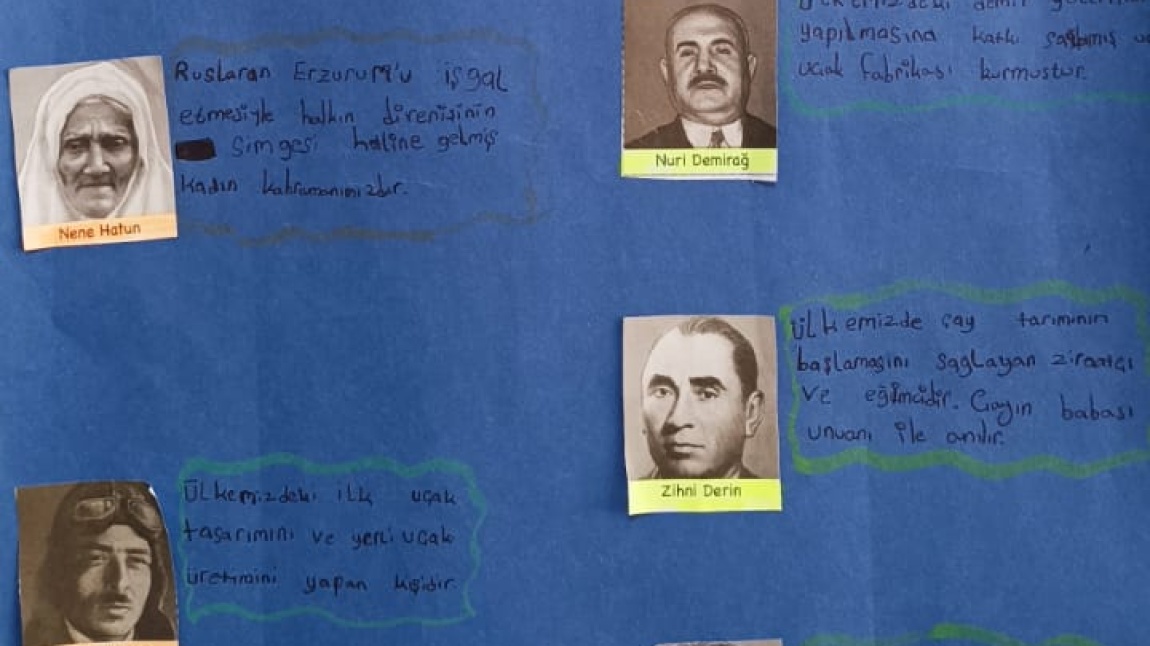 Ruslaran Erzurum'u işgal
etmesiyle halkın direnişinin
simgesi haline gelmiş
kadın kahramanımızdır.
Nene Hatun
Ülkemizdeki ilk uçak
tasarımını ve yerli uçak
üretimini yapan kişidir.
ülkemizdeki demir
yapılmasına katkı sağlamış ve
uçak fabrikası kurmuştur.
Nuri Demirağ
Ülkemizde çay tarımının
başlamasını sağlayan ziraatçı
ve eğitmcidir. Çayın babası
unvanı ile anılır.
Zihni Derin